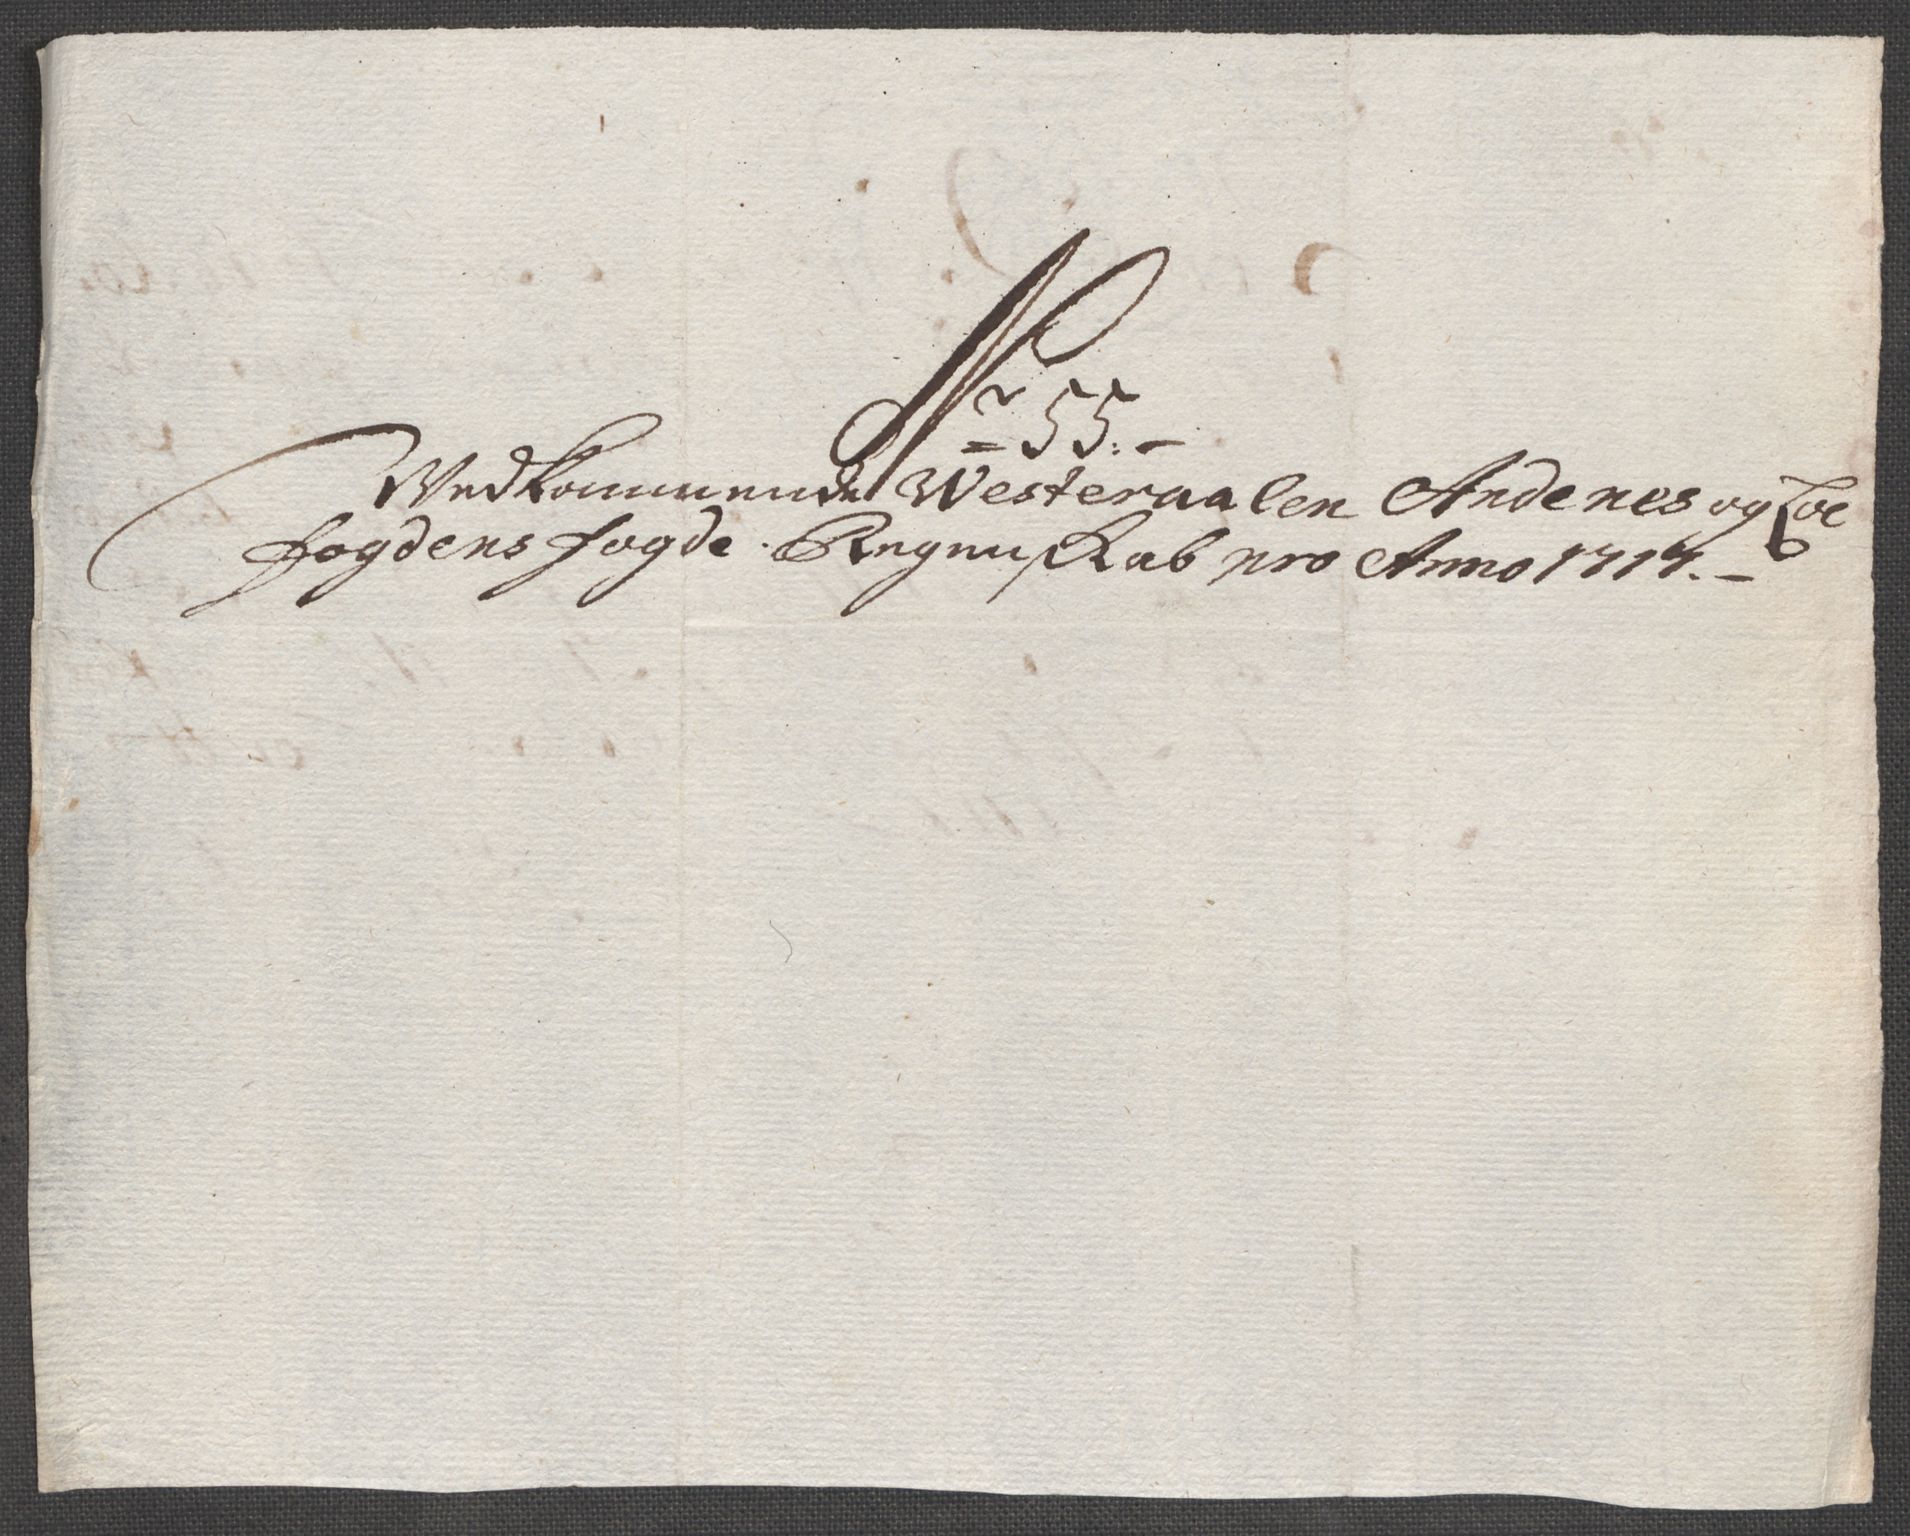 Nr 55.
Vedkommende Westeraalen Andenes og Loe
fogdens fogde Regnskab pro Anno 1717.